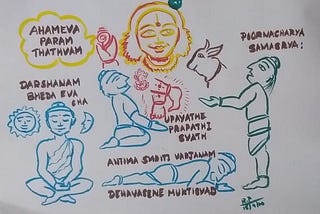 AHAMEVA
PARAM
THATHVAM
POORNACHARYA
SAMASRAYA:
DARSHANAM
BHEDA EVA
CHA
UPAYATHE
PRAPATHI
SYATH
ANTIMA SMRITI VARJANAM
DEHAVASENE MUKTISYAD